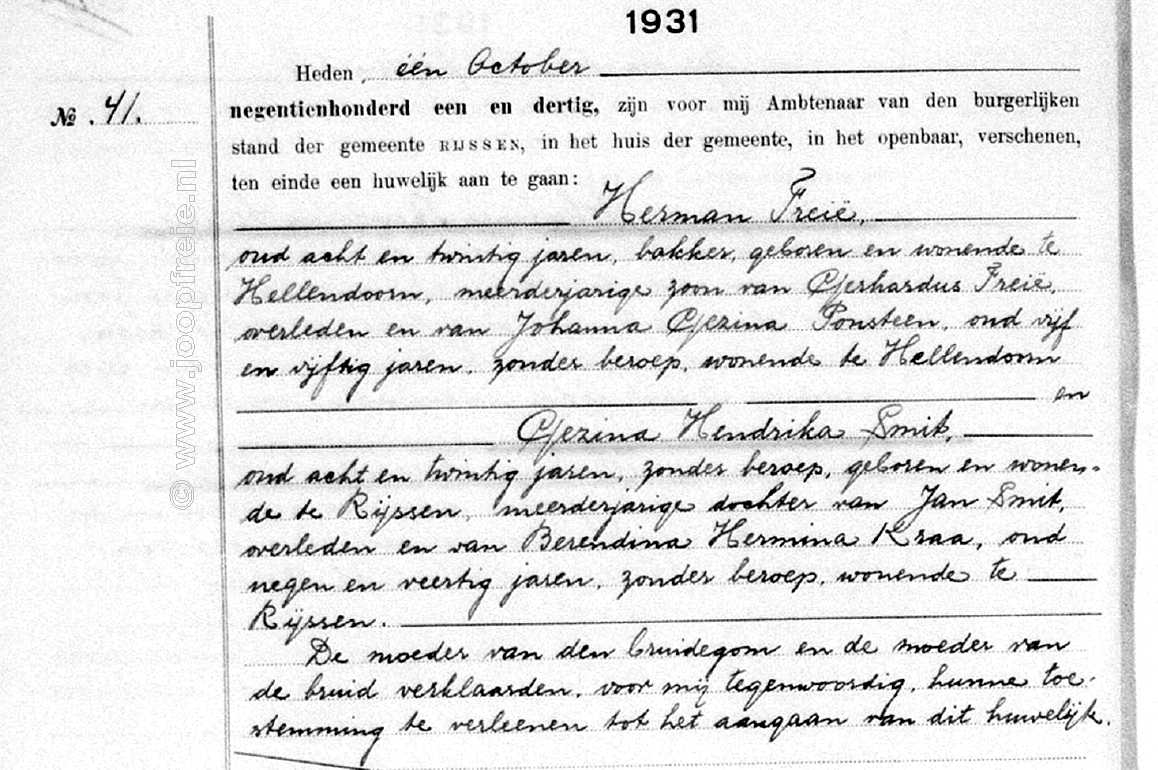 1931
Heden, één October
№. 41.
negentienhonderd een en dertig, zijn voor mij Ambtenaar van den burgerlijken
stand der gemeente RIJSSEN, in het huis der gemeente, in het openbaar, verschenen,
ten einde een huwelijk aan te gaan:
Herman Freië,
oud acht en twintig jaren, bakker, geboren en wonende te
Hellendoorn, meerderjarige zoon van Gerhardus Freië,
overleden en van Johanna Gezina Ponsteen, oud vijf
en vijftig jaren, zonder beroep, wonende te Hellendoorn
en
Gezina Hendrika Smit,
oud acht en twintig jaren, zonder beroep, geboren en wonen-
de te Rijssen, meerderjarige dochter van Jan Smit,
overleden en van Berendina Hermina Kraa, oud
negen en veertig jaren, zonder beroep, wonende te
Rijssen.
De moeder van den bruidegom en de moeder van
de bruid verklaarden, voor mij tegenwoordig, hunne toe-
stemming te verleenen tot het aangaan van dit huwelijk.
© www.joopfreie.nl